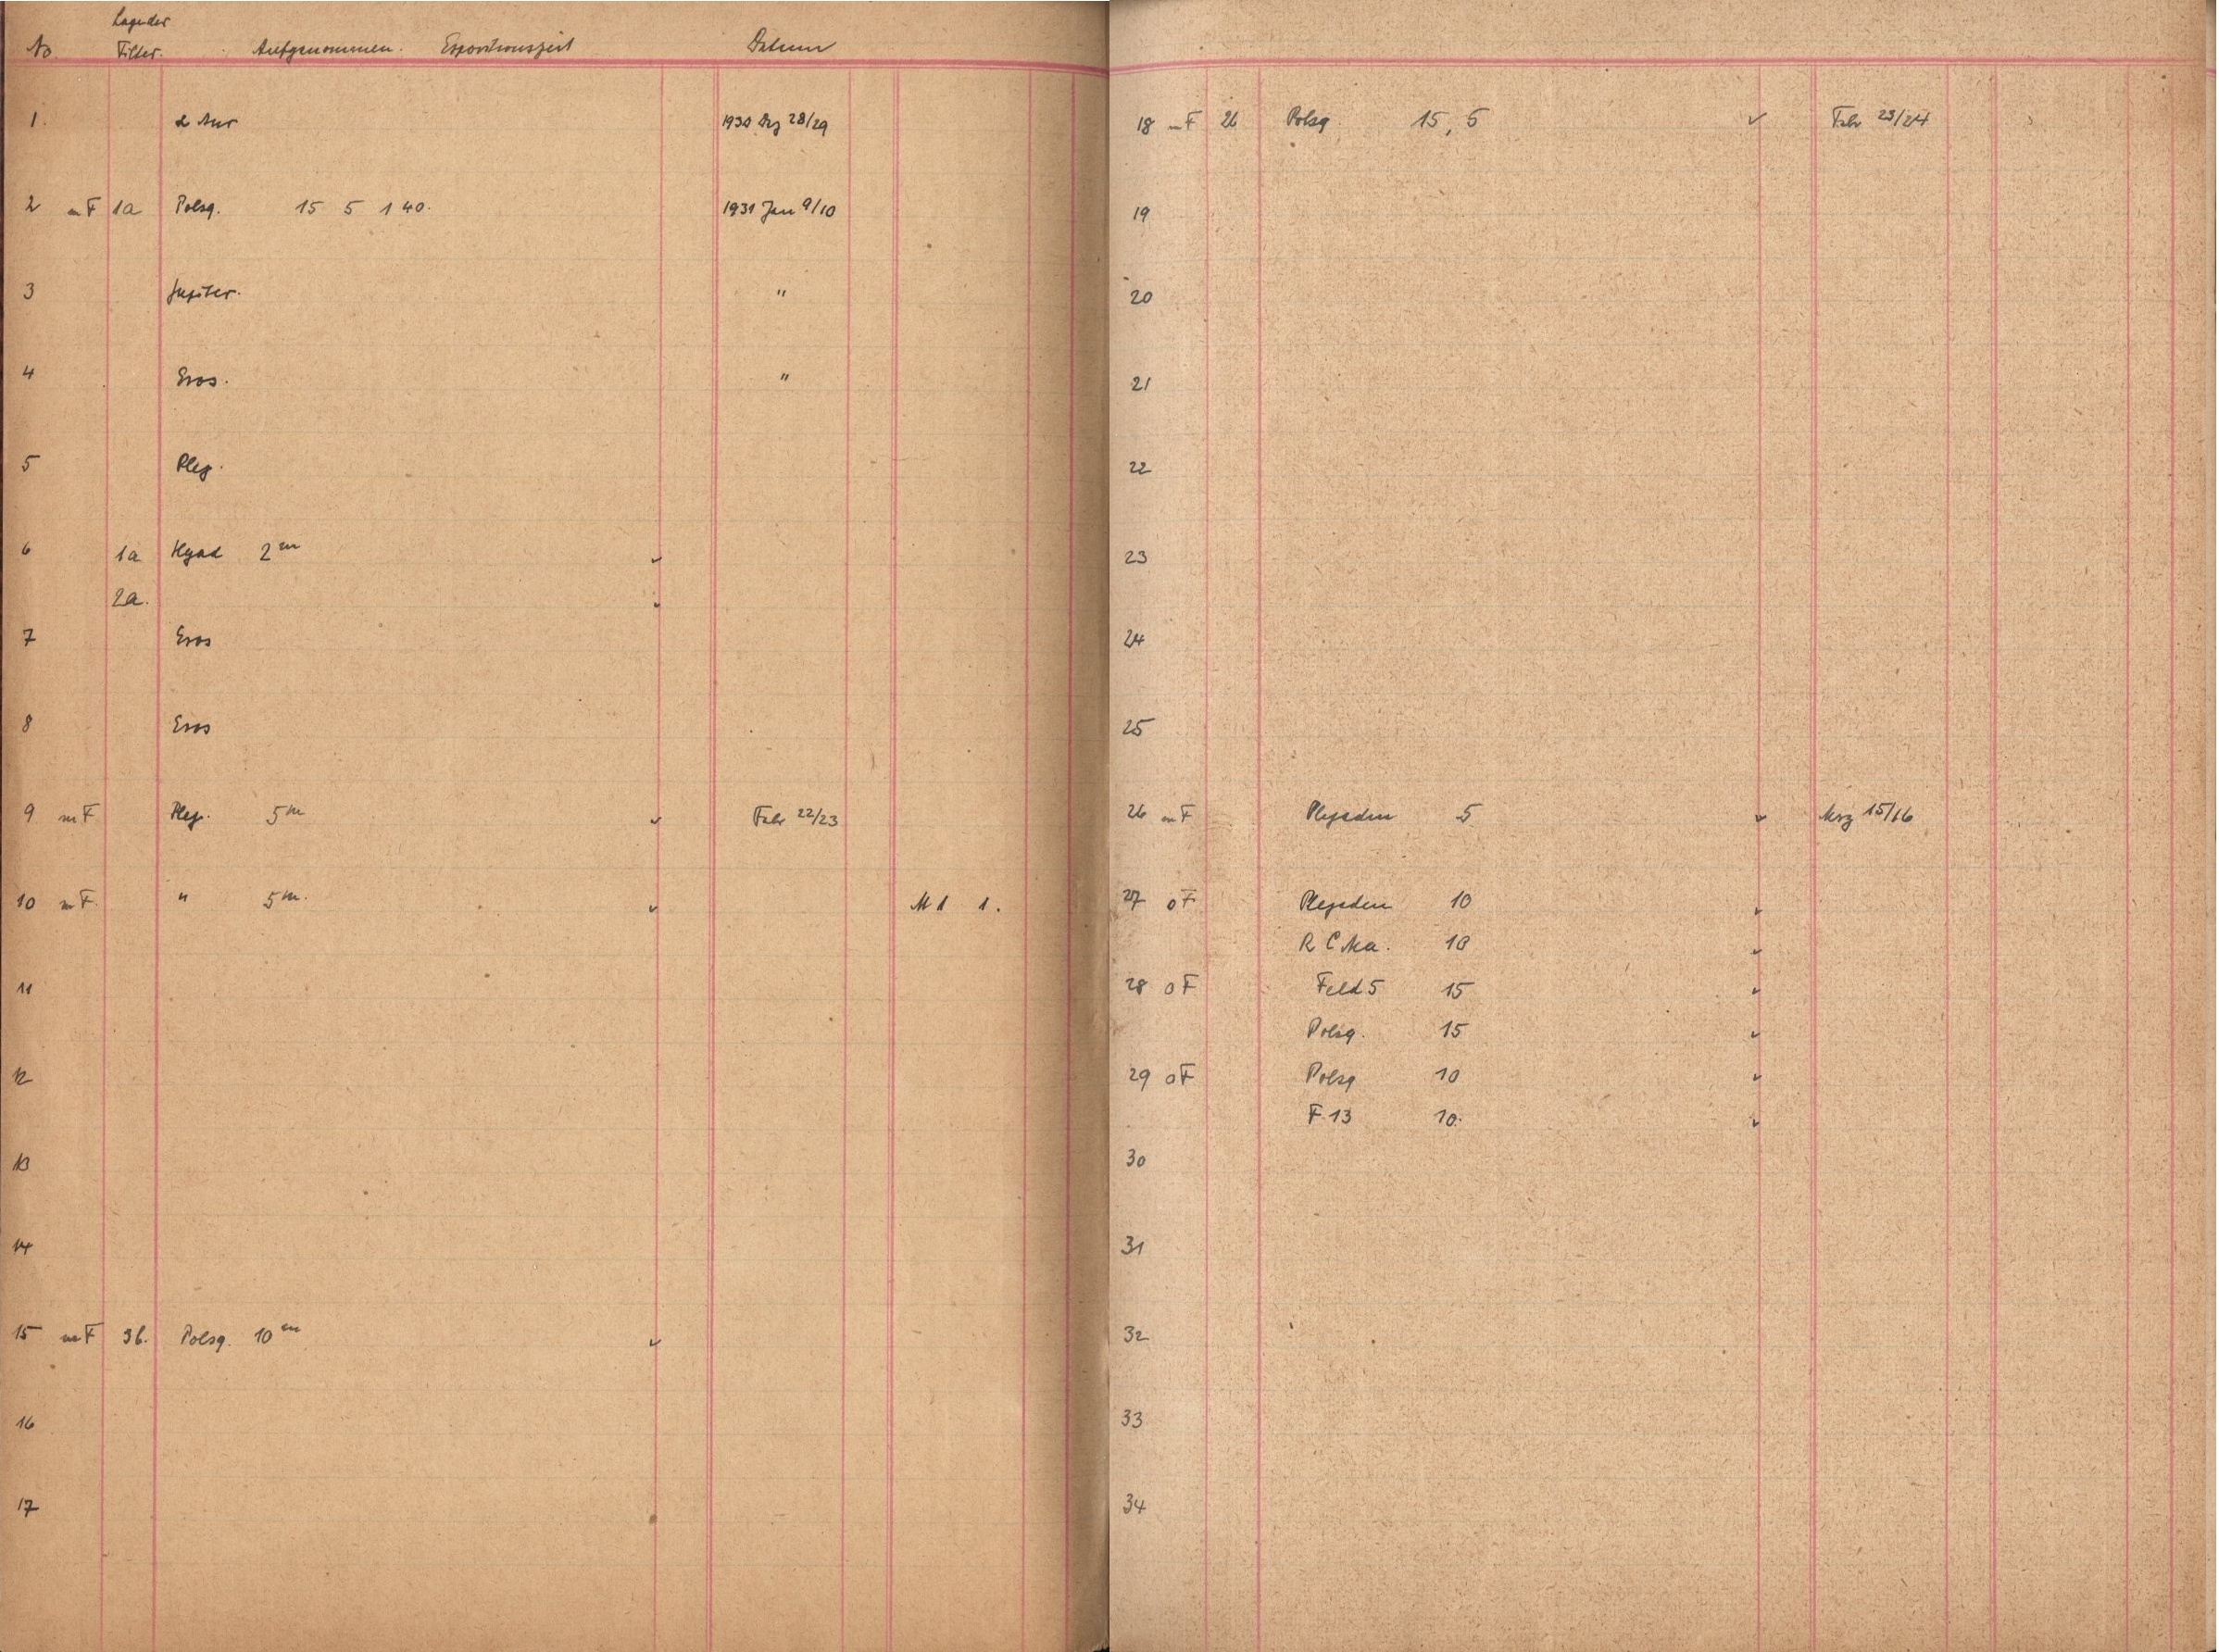 Lage der
No. Filter. Aufgenommen. Expositionszeit Datum
1. α Aur 1930 Dez 28/29
2 mF 1a Polsq. 15 5 1 40. 1931 Jan 9/10
3 Jupiter. "
4 Eros. "
5 Plej.
6 1a Hyad 2m ✓
2a. ✓
7 Eros
8 Eros
9 mF Plej. 5m ✓ Febr 22/23
10 mF. " 5m. ✓ M 1 1.
11
12
13
14
15 mF 3b. Polsq. 10m ✓
16
17
18 mF 2b Polsq 15, 5 ✓ Febr 23/24
19
20
21
22
23
24
25
26 mF Plejaden 5 ✓ Mrz 15/16
27 oF Plejaden 10 ✓
R C Ma. 10 ✓
28 oF Feld 5 15 ✓
Polsq. 15 ✓
29 oF Polsq 10 ✓
F. 13 10. ✓
30
31
32
33
34